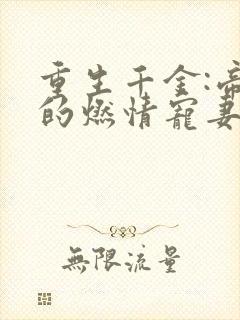 重生千金:帝
的燃情寵妻
無限流量